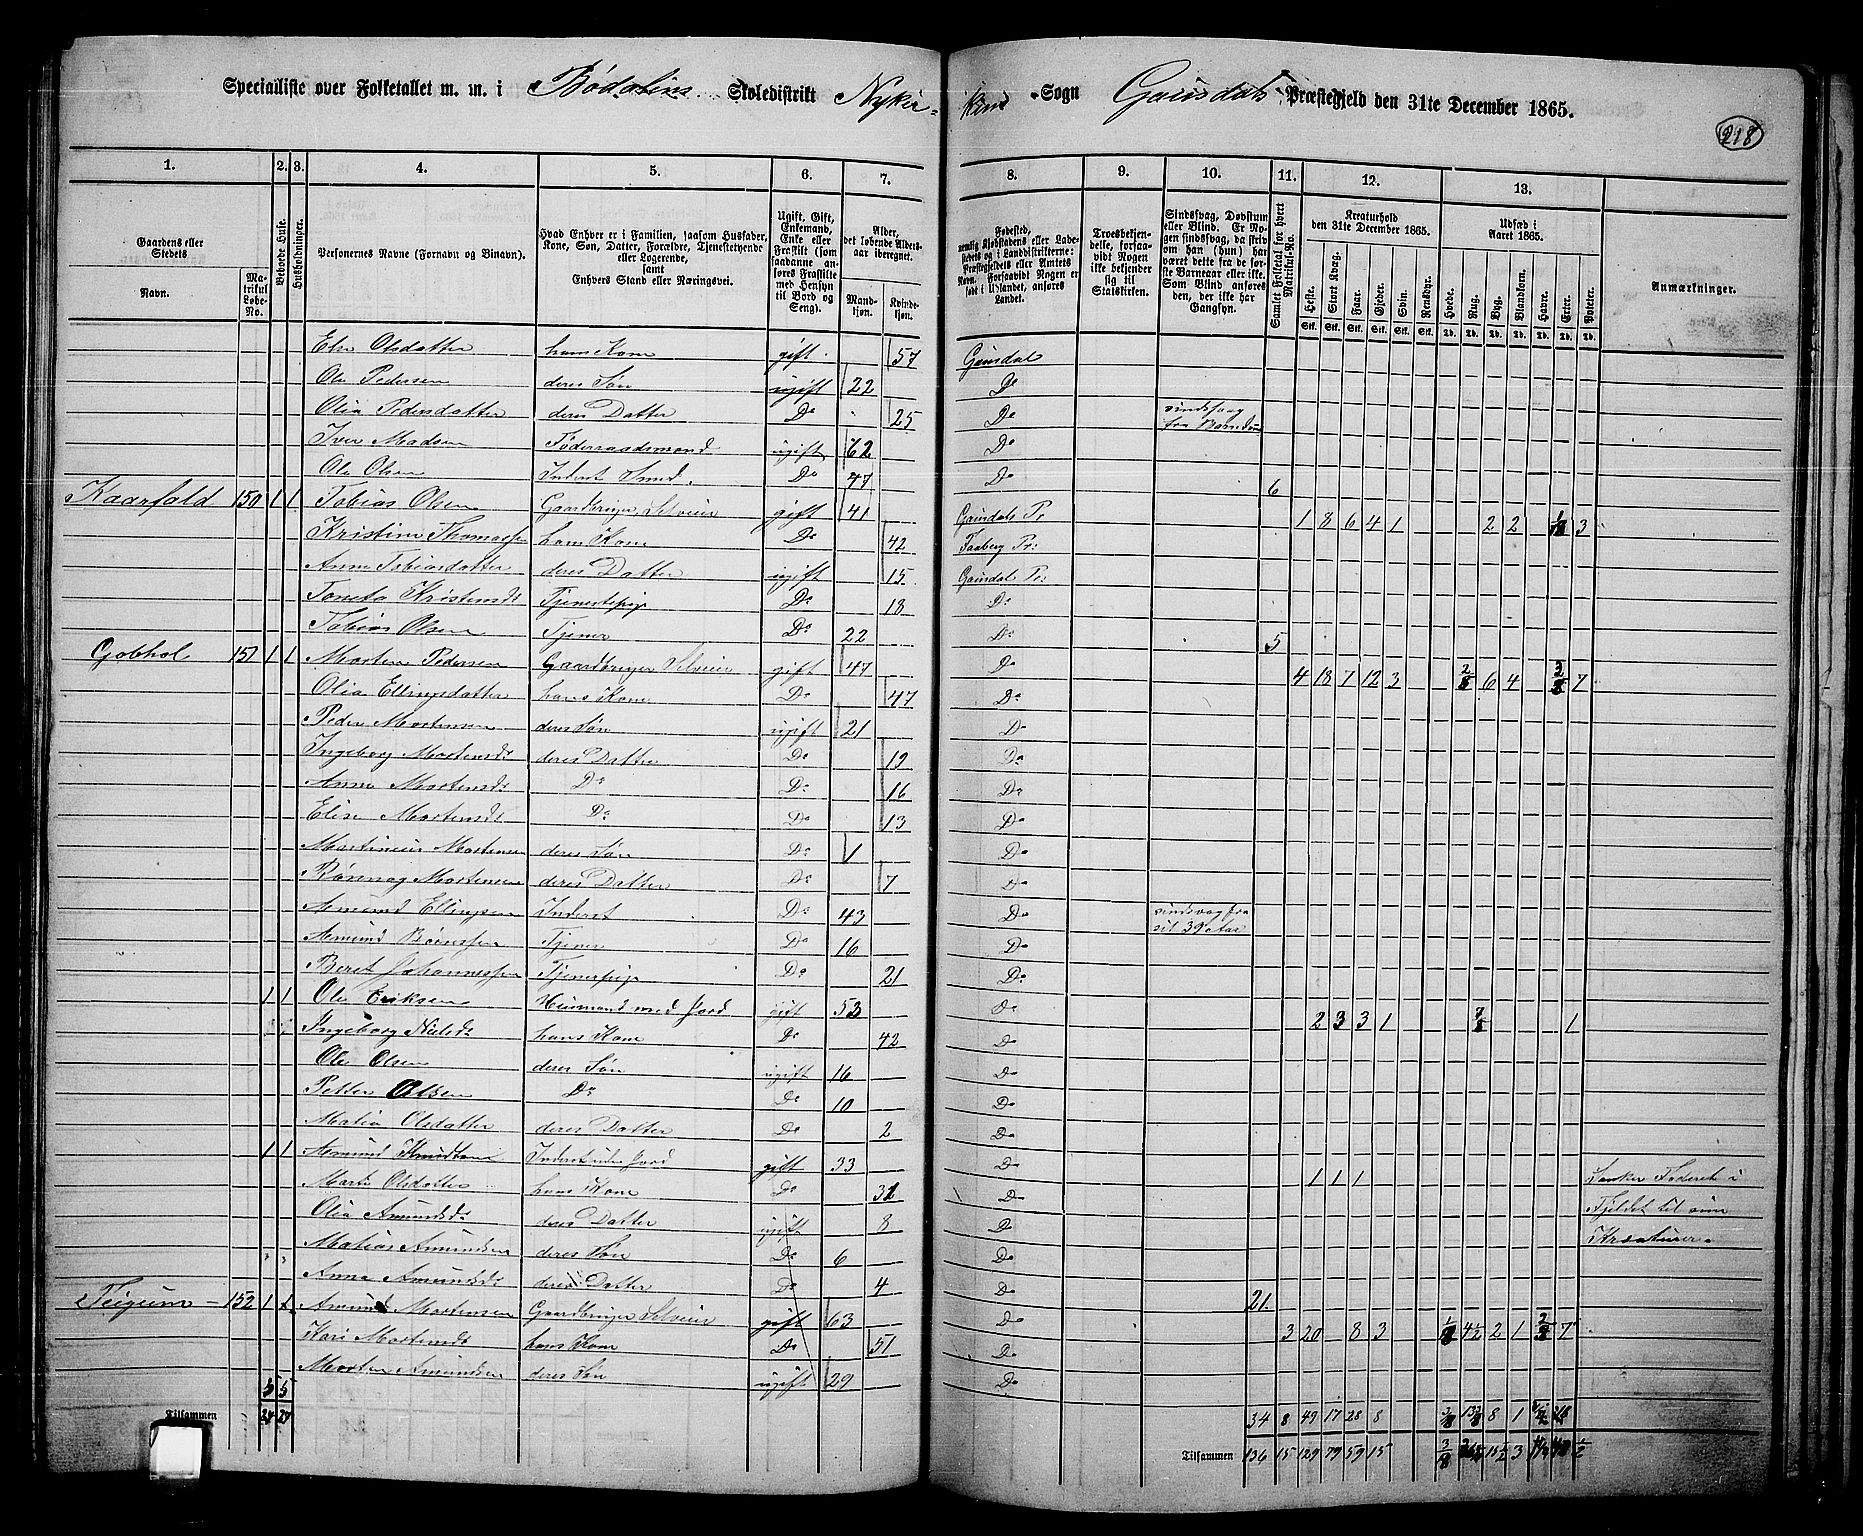 Specialliste over Folketallet m. m. i Bødalens Skoledistrikt Nykir- kens Sogn Gausdals Præstegjeld den 31te December 1865.
218
1. 2. 3. 4. 5. 6. 7. 8. 9. 10. 11. 12. 13.
Gaardens eller Stedets Navn. Matrikul Løbe-No. Beboede Huse. Husholdninger. Personernes Navne (Fornavn og Binavn). Hvad Enhver er i Familien, saasom Husfader, Kone, Søn, Datter, Forældre, Tjenestetyende eller Logerende, samt Enhvers Stand eller Næringsvei. Ugift, Gift, Enkemand, Enke eller Fraskilt (som saadanne anføres Fraskilte med Hensyn til Bord og Seng). Alder, det løbende Aldersaar iberegnet. Mandkjøn. Kvindekjøn.
Fødested, Troesbekjendelse, forsaavidt Nogen ikke bekjender sig til Statskirken. Sindssvag, Døvstum eller Blind. Samlet Folketal for hvert Matrikul-No. Kreaturhold den 31te December 1865. Heste. Stort Kvæg. Faar. Gjeder. Svin. Rensdyr. Udsæd i Aaret 1865. Hvede. Rug. Byg. Blandkorn. Havre. Erter. Poteter. Anmærkninger.
Else Olsdatter hans Kone gift 57 Gausdal
Ole Pedersen deres Søn ugift 22 Do
Olia Pedersdatter deres Datter Do 25 Do sindssvag fra Barndom
Iver Madsen Føderaadsmand ugift 62 Do
Ole Olsen Inderst Smed. Do 47 Do 6
Kaarfald 150 1 1 Tobias Olsen Gaardbruger Selveier gift 41 Gausdals Pr 1 8 6 4 1 2 2 3
Kristine Thomassen hans Kone Do 42 Faaberg Pr:
Anne Tobiasdatter deres Datter ugift 15 Gausdal Pr:
Kristensdr Tjenestepige Do 18 Do
Tobias Olsen Tjener Do 22 Do 5
Gobhol 151 1 1 Morten Pedersen Gaardbruger Selveier gift 47 Do 4 18 7 12 3 6 4 7
Olia Ellingsdatter hans Kone Do 47 Do
Peder Mortensen deres Søn ugift 21 Do
Ingeborg Mortensdr deres Datter Do 19 Do
Anne Mortensdr Do Do 16 Do
Elise Mortensdr Do Do 13 Do
Martinus Mortensen deres Søn Do 1 Do
Rønnog Mortensen deres Datter Do 7 Do
Amund Ellingsen Inderst Do 43 Do sindsvag fra sit 39te Aar
Amund Tjener Do 16 Do
Berit Johannessen Tjenestepige Do 21 Do
1 1 Ole Eriksen Husmand med Jord gift 53 Do 2 3 3 1 1
Ingeborg Nielsdr hans Kone Do 42 Do
Ole Olsen deres Søn ugift 16 Do
Petter Olsen Do Do 10 Do
Matia Olsdatter deres Datter Do 2 Do
1 1 Amund Knudsen Inderst uden Jord gift 33 Do 1 1 1 Sanker Foderet i
Marte Olsdatter hans Kone Do 31 Do Fjeldet til sine
Olia Amundsdr deres Datter ugift 8 Do Kreaturer.
Matias Amundsen deres Søn Do 6 Do
Anna Amundsdr deres Datter Do 4 Do 21.
Teigum 152 1 1 Amund Mortensen Gaardbruger Selveier gift 63 Do 3 20 8 3 4½ 2 1 7
Kari Mortensdr hans Kone Do 51 Do
Morten Amundsen deres Søn ugift 29 Do
5 5
Tilsammen 34 8 49 17 28 8 8 1
Tilsammen 136 15 129 79 59 15 3/8 15½ 3